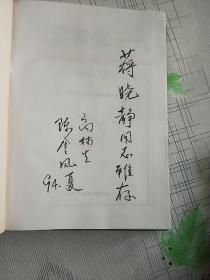 蒋晓静同志雅存
高树生
陈金凤
94.夏